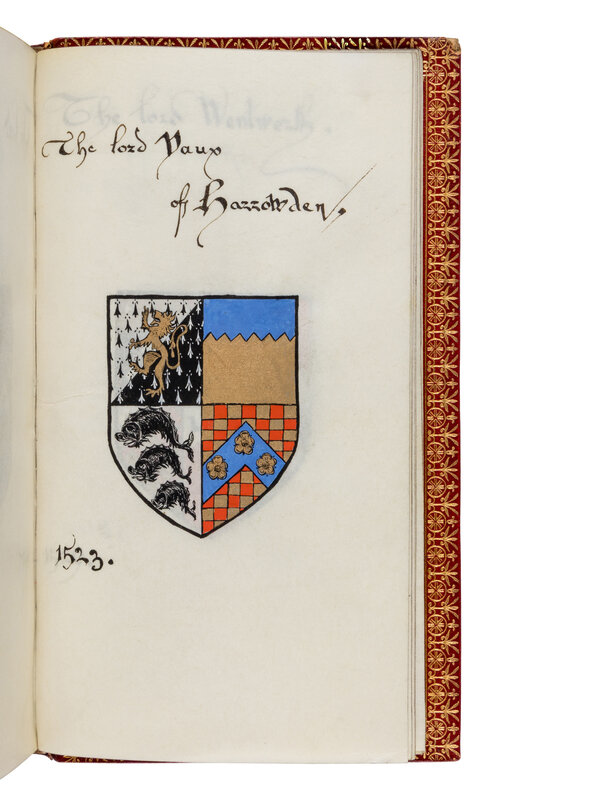 The lord Vaux
of Harrowden.
1523.